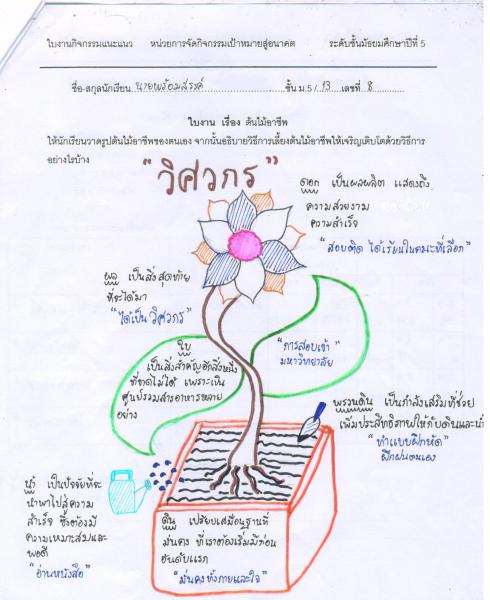 ใบงานกิจกรรมแนะแนว หน่วยการจัดกิจกรรมเป้าหมายสู่อนาคต ระดับชั้นมัธยมศึกษาปีที่ 5
ชื่อ-สกุลนักเรียน นายพร้อมสรรค์ ชั้น ม.5 / 13 เลขที่ 8
ใบงาน เรื่อง ต้นไม้อาชีพ
ให้นักเรียนวาดรูปต้นไม้อาชีพของตนเอง จากนั้นอธิบายวิธีการเลี้ยงต้นไม้อาชีพให้เจริญเติบโตด้วยวิธีการ
อย่างไรบ้าง
"วิศวกร"
ดอก เป็นผลผลิต แสดงถึง
ความสวยงาม
ความสำเร็จ
"สอบติด ได้เรียนในคณะที่เลือก"
ผล เป็นสิ่งสุดท้าย
ที่จะได้มา
"ได้เป็นวิศวกร"
ใบ
เป็นสิ่งสำคัญอีกสิ่งหนึ่ง
ที่ขาดไม่ได้ เพราะเป็น
ศูนย์รวมสารอาหารหลาย
อย่าง
"การสอบเข้า"
มหาวิทยาลัย
พรวนดิน เป็นกำลังเสริมที่ช่วย
เพิ่มประสิทธิภาพให้กับดินและน้ำ
"ทำแบบฝึกหัด"
ฝึกฝนตนเอง
น้ำ เป็นปัจจัยที่จะ
นำพาไปสู่ความ
สำเร็จ ซึ่งต้องมี
ความเหมาะสมและ
พอดี
"อ่านหนังสือ"
ดิน เปรียบเสมือนฐานที่
มั่นคง ที่เราต้องเริ่มมีก่อน
อันดับแรก
"มั่นคงทั้งกายและใจ"